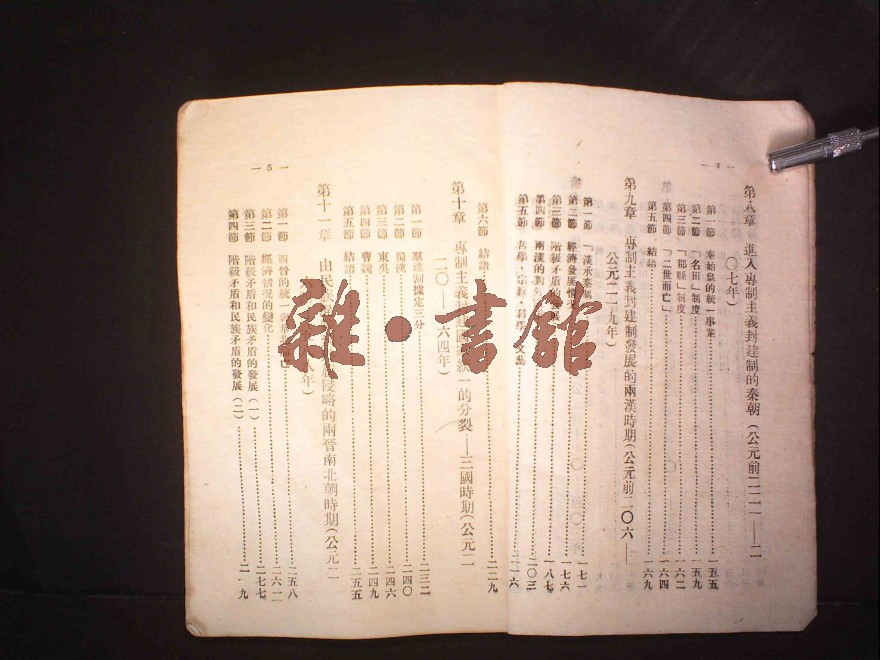 — 4 —
第八章 進入專制主義封建制的秦朝（公元前二二一——二
〇七年）
第一節 秦始皇的統一事業……一五五
第二節 「名田」制度……一五九
第三節 「郡縣」制度……一六二
第四節 「二世而亡」……一六四
第五節 結語……一六九
第九章 專制主義封建制發展的兩漢時期（公元前二〇六—
公元二一九年）
第一節 「漢承秦……一七一
第二節 經濟發展情況……一七六
第三節 階級矛盾的發展……一八七
第四節 兩漢的對外……二〇三
第五節 哲學、宗教、科學、文藝……二一六
— 5 —
第六節 結語……二二九
第十章 專制主義封建國家統一的分裂——三國時期（公元二
二〇——二六四年）
第一節 羣雄割據定三分……二三二
第二節 蜀漢……二四〇
第三節 東吳……二四六
第四節 曹魏……二四九
第五節 結語……二五五
第十一章 由民族 侵略的兩晉南北朝時期（公元二
八年）
第一節 西晉的統一……二五八
第二節 經濟情況的變化……二六二
第三節 階級矛盾和民族矛盾的發展（一）……二七七
第四節 階級矛盾和民族矛盾的發展（二）……二 九
雜·書館